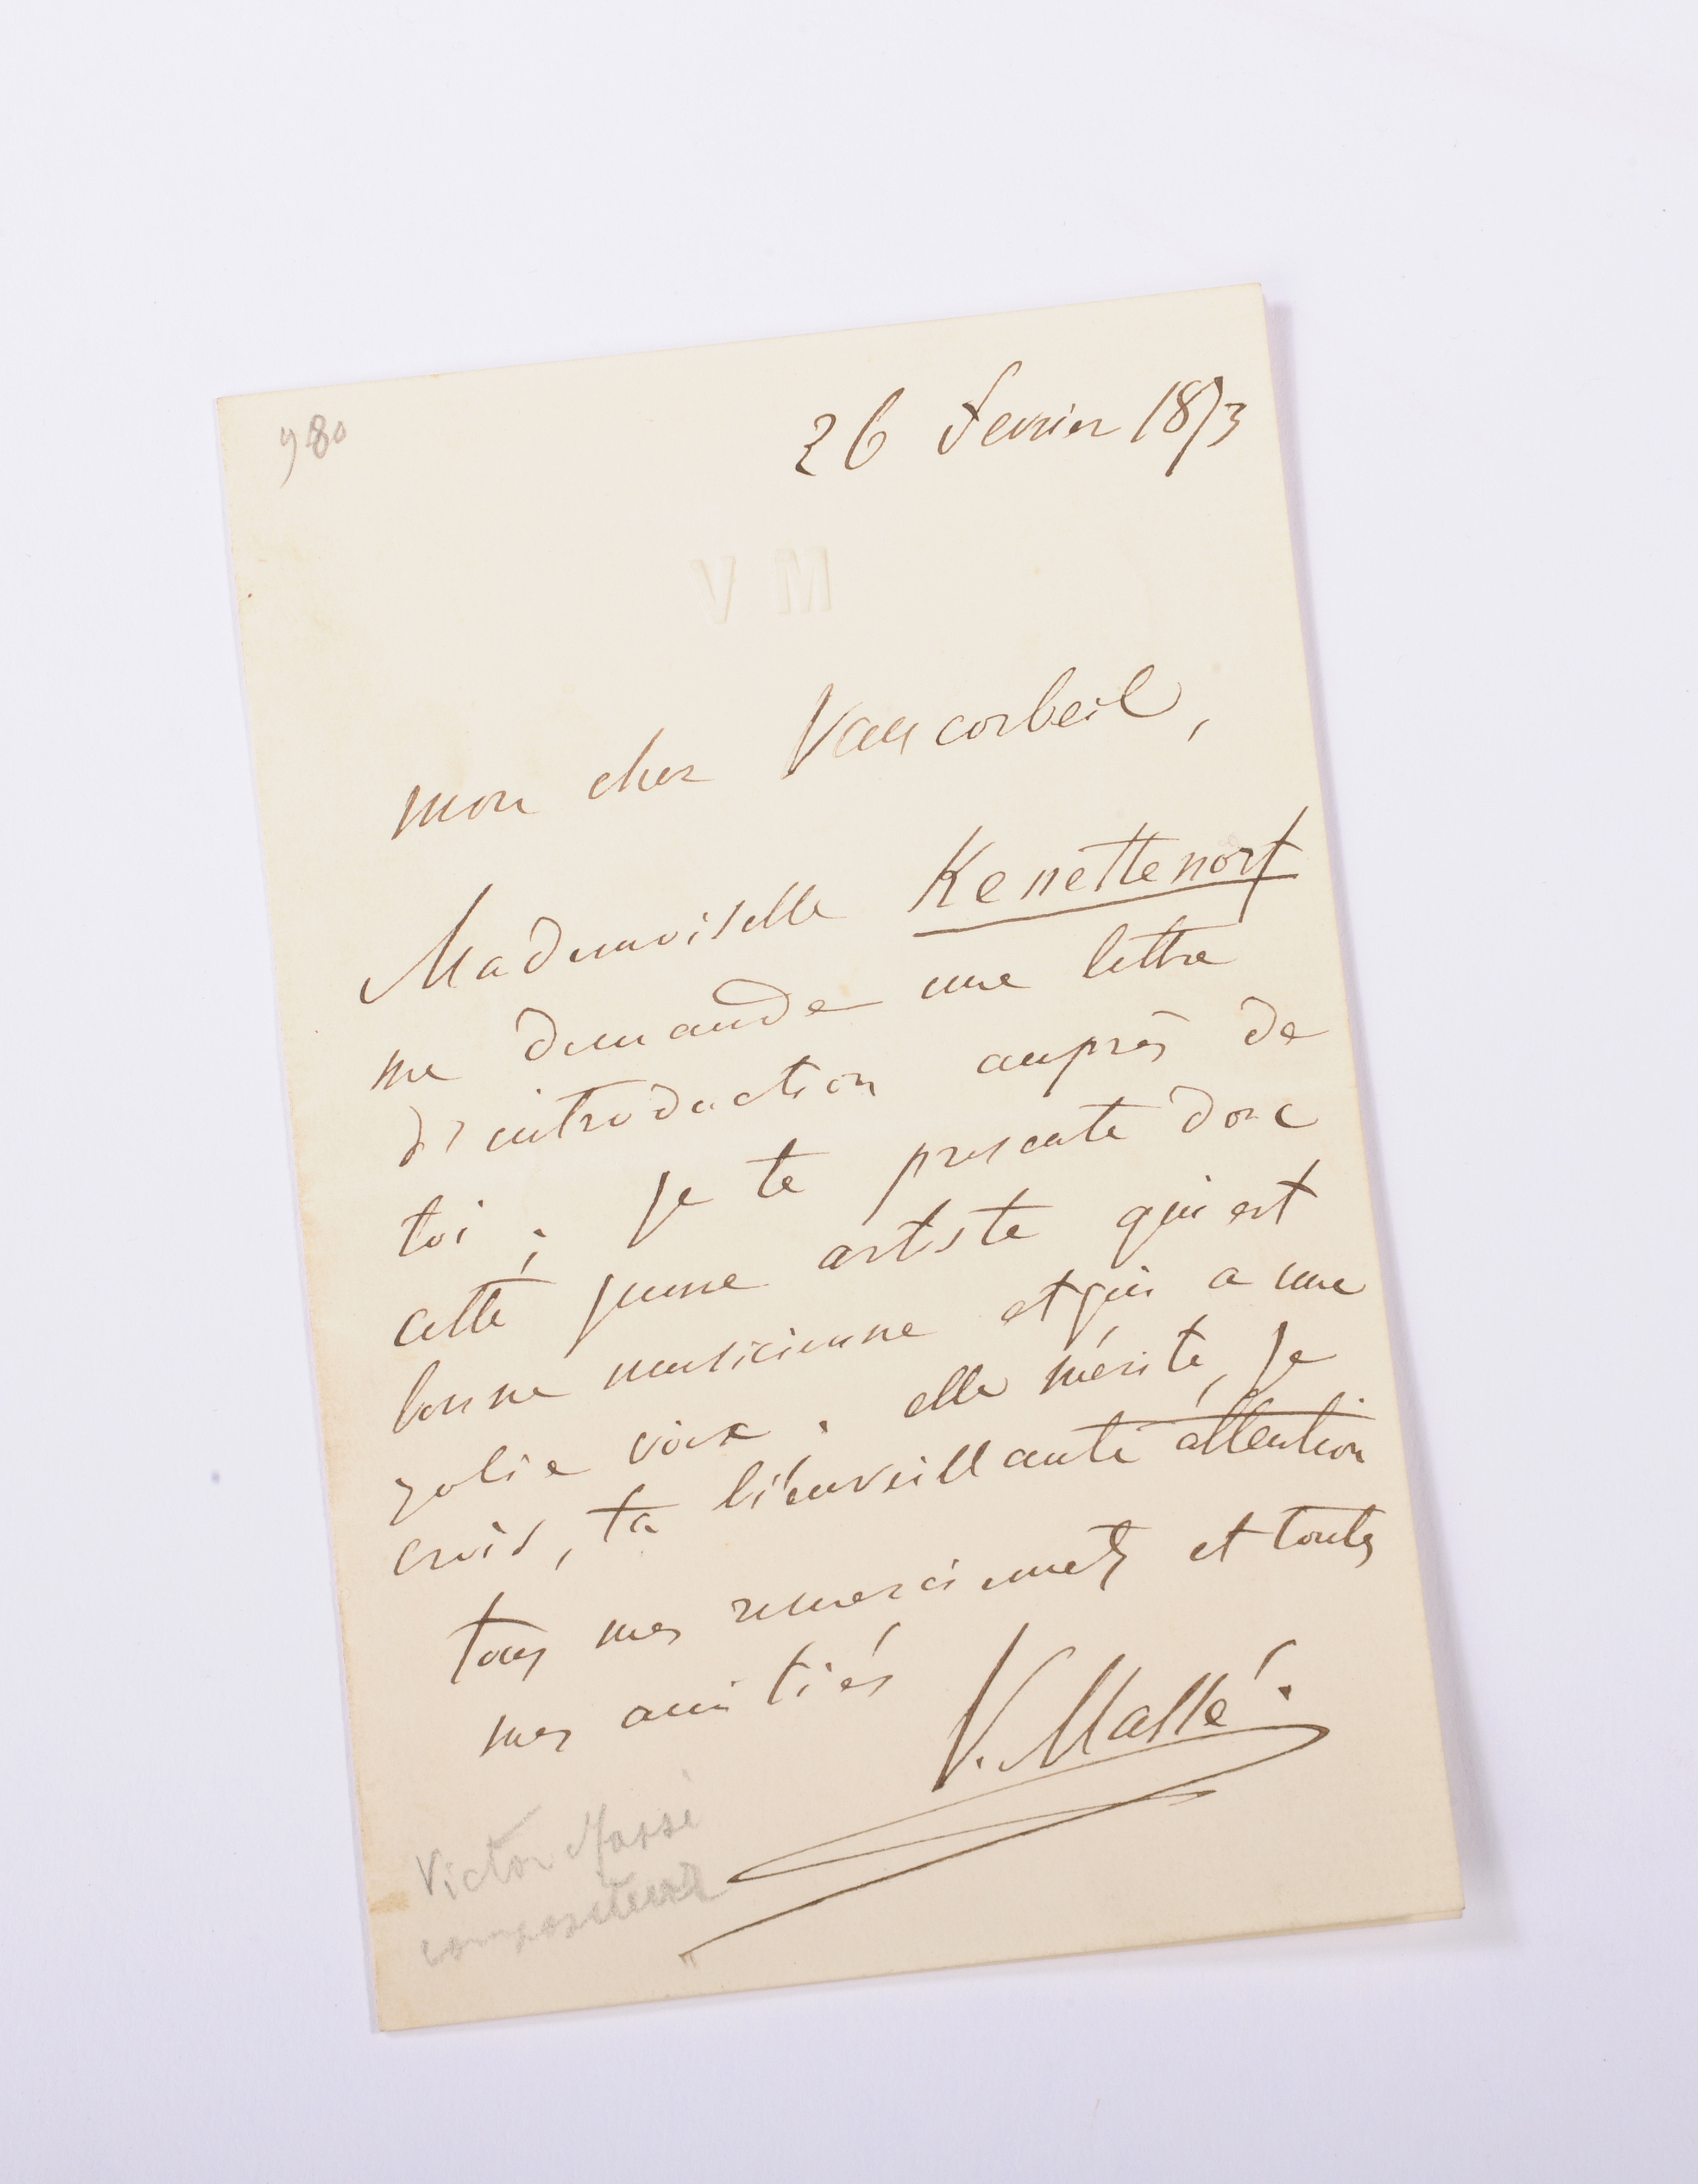 980
26 fevrier 1873
V M
mon cher Vaucorbeil,
Mademoiselle Kenettenorf
me demande une lettre
d'introduction auprès de
toi ; je te presente donc
cette jeune artiste qui est
bonne musicienne et qui a une
jolie voix ; elle mérite, je
crois, ta bienveillante attention
tous mes remerciments et toutes
mes amitiés
V. Massé.
Victor Massé
compositeur